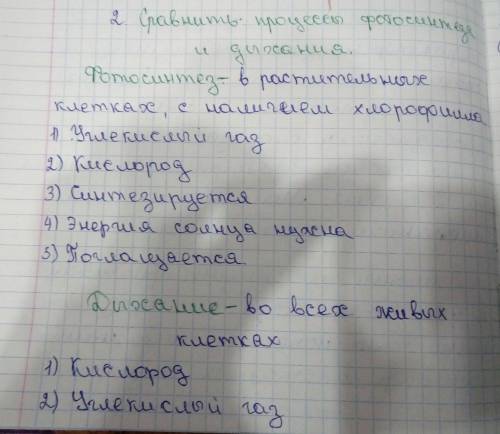 2. Сравнить процессы фотосинтеза
и дыхания.
Фотосинтез - в растительных
клетках, с наличием хлорофилла
1) Углекислый газ
2) Кислород
3) Синтезируется
4) Энергия солнца нужна
5) Поглащается
Дыхание - во всех живых
клетках
1) Кислород
2) Углекислый газ